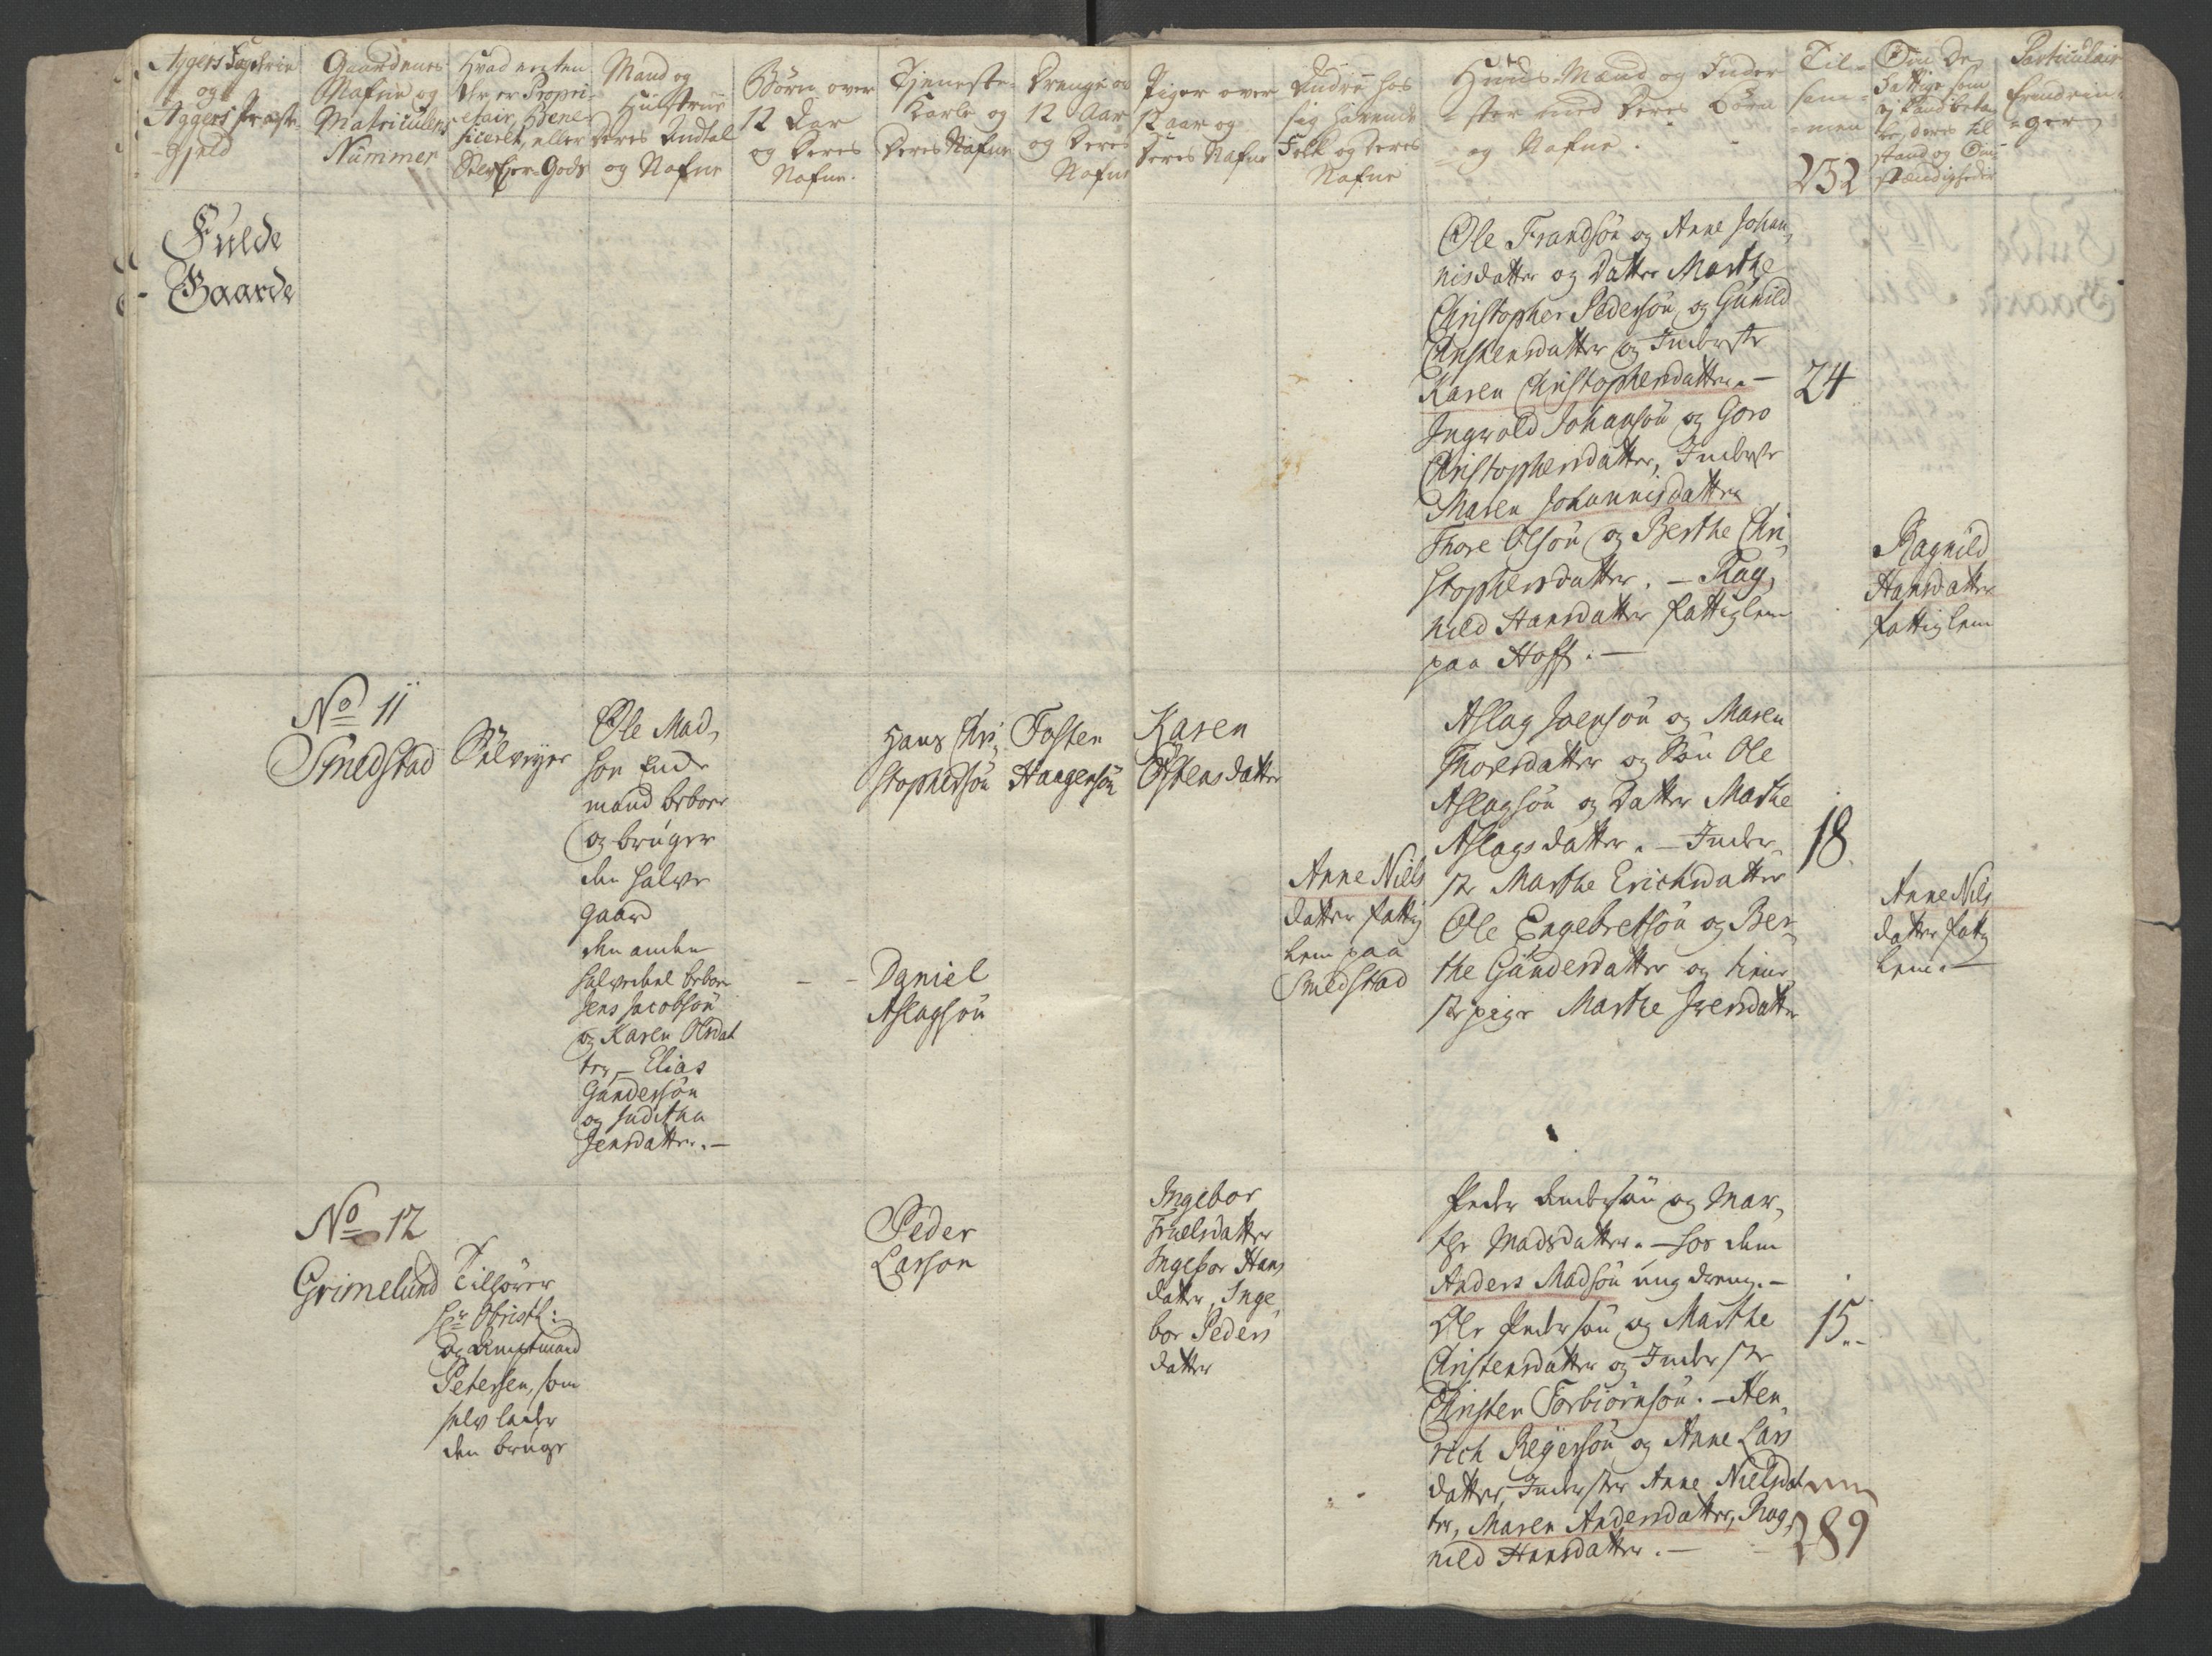 Aggers Fogderie
og
Aggers Præste-
gield
Gaardenes
Nafne og
Matriculens
Nummer
Hvad enten
de er Propri-
etair, Bene-
ficeret, eller
Selv Ejer-Gods
Mand og
Hustrue
Deres Andtal
og Nafne
Børn over
12 Aar
og Deres
Nafne.
Tjeneste-
Karle og
Deres Nafne
Drenge ov
12 Aar
og Deres
Nafne
Piger over
12 aar og
Deres Nafne
Andre hos
sig havende
Folk og Deres
Nafne
Huus-Mænd og Inder
ster med Deres Børn
og Nafne.
Til-
sam-
men
232
Om De
Fattige som
ej kand beta-
le, deres til
stand og Om-
stændigheder
Particulair
Erindrin-
ger
Fulde
Gaarde
Ole Frandsøn og Anne Johan,
nisdatter og Datter Marthe
Christopher Pedersøn og Gunild
Christensdatter og Inderste
Karen Christophersdatter. —
Ingvold Johansøn og Goro
Christophersdatter, Inderste
Maren Johannisdatter
Thore Olsøn og Berthe Chri,
stophersdatter. — Rag,
nild Hansdatter fattiglem
paa Hoff. —
24
Ragnild
Hansdatter
fattiglem
No 11
Smedstad
Selvejer
Ole Mad,
son Enke
mand beboer
og bruger
den halve
gaard
den anden
halvedeel beboer
Jens Jacobsøn
og Karen Olsdat
ter, — Elias
Gundersøn
og Juditha
Jensdatter. —
Hans Chri,
stophersøn
Daniel
Aslagsøn
Tosten
Haagensøn
Karen
Østensdatter
Anne Niels
datter fattig
lem paa
Smedstad
Aslag Joensøn og Maren
Thoresdatter og Søn Ole
Aslagsøn og Datter Marthe
Aslagsdatter. — Inder,
ste Marthe Erichsdatter
Ole Engebretsøn og Ber,
the Gundersdatter og tiene,
ste pige Marthe Iversdatter
18
Anne Niels
datter fattig
lem. —
No 12
Grimelund
Tilhører
Hr Obristl:
og Amptmand
Petersen, som
selv lader
den bruge
Peder
Larson
Ingebor
Truelsdatter
Ingebor Hans
datter, Inge,
bor Peders
datter
Peder Andersøn og Mar,
the Madsdatter. — hos dem
Anders Madsøn ung dreng. —
Ole Pedersøn og Marthe
Christensdatter og Inderste
Christen Torbiørnsøn. — Hen,
rich Regersøn og Anne Lars
datter, Inderster Anne Nielsdat
ter, Maren Andersdatter, Rag,
nild Hansdatter. —
15
289